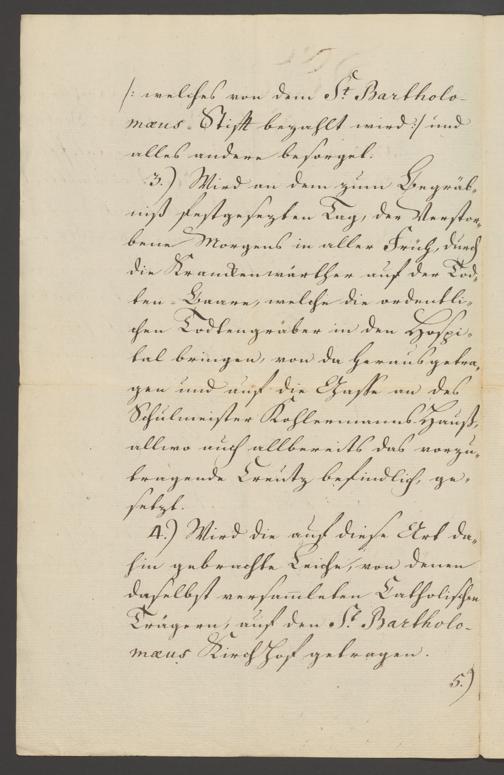 /: welches von dem St Bartholo-
mæus-Stifft bezahlt wird :/ und
alles andere besorget.
3.) Wird an dem zum Begräb-
niß festgesezten Tag, der Verstor-
bene Morgens in aller Früh, durch
die Krankenwärther auf der Tod-
ten-Baare, welche die ordentli-
chen Todtengräber in den Hospi-
tal bringen, von da herausgetra-
gen und auf die Gasse an des
Schulmeister Kohlermanns Hauß,
allwo auch allbereits das vorzu-
tragende Creutz befindlich, ge-
setzt.
4.) Wird die auf diese Art da-
hin gebrachte Leiche, von denen
daselbst versam̅leten Catholischen
Trägern, auf den St. Bartholo-
mæus Kirchhof getragen.
5.)